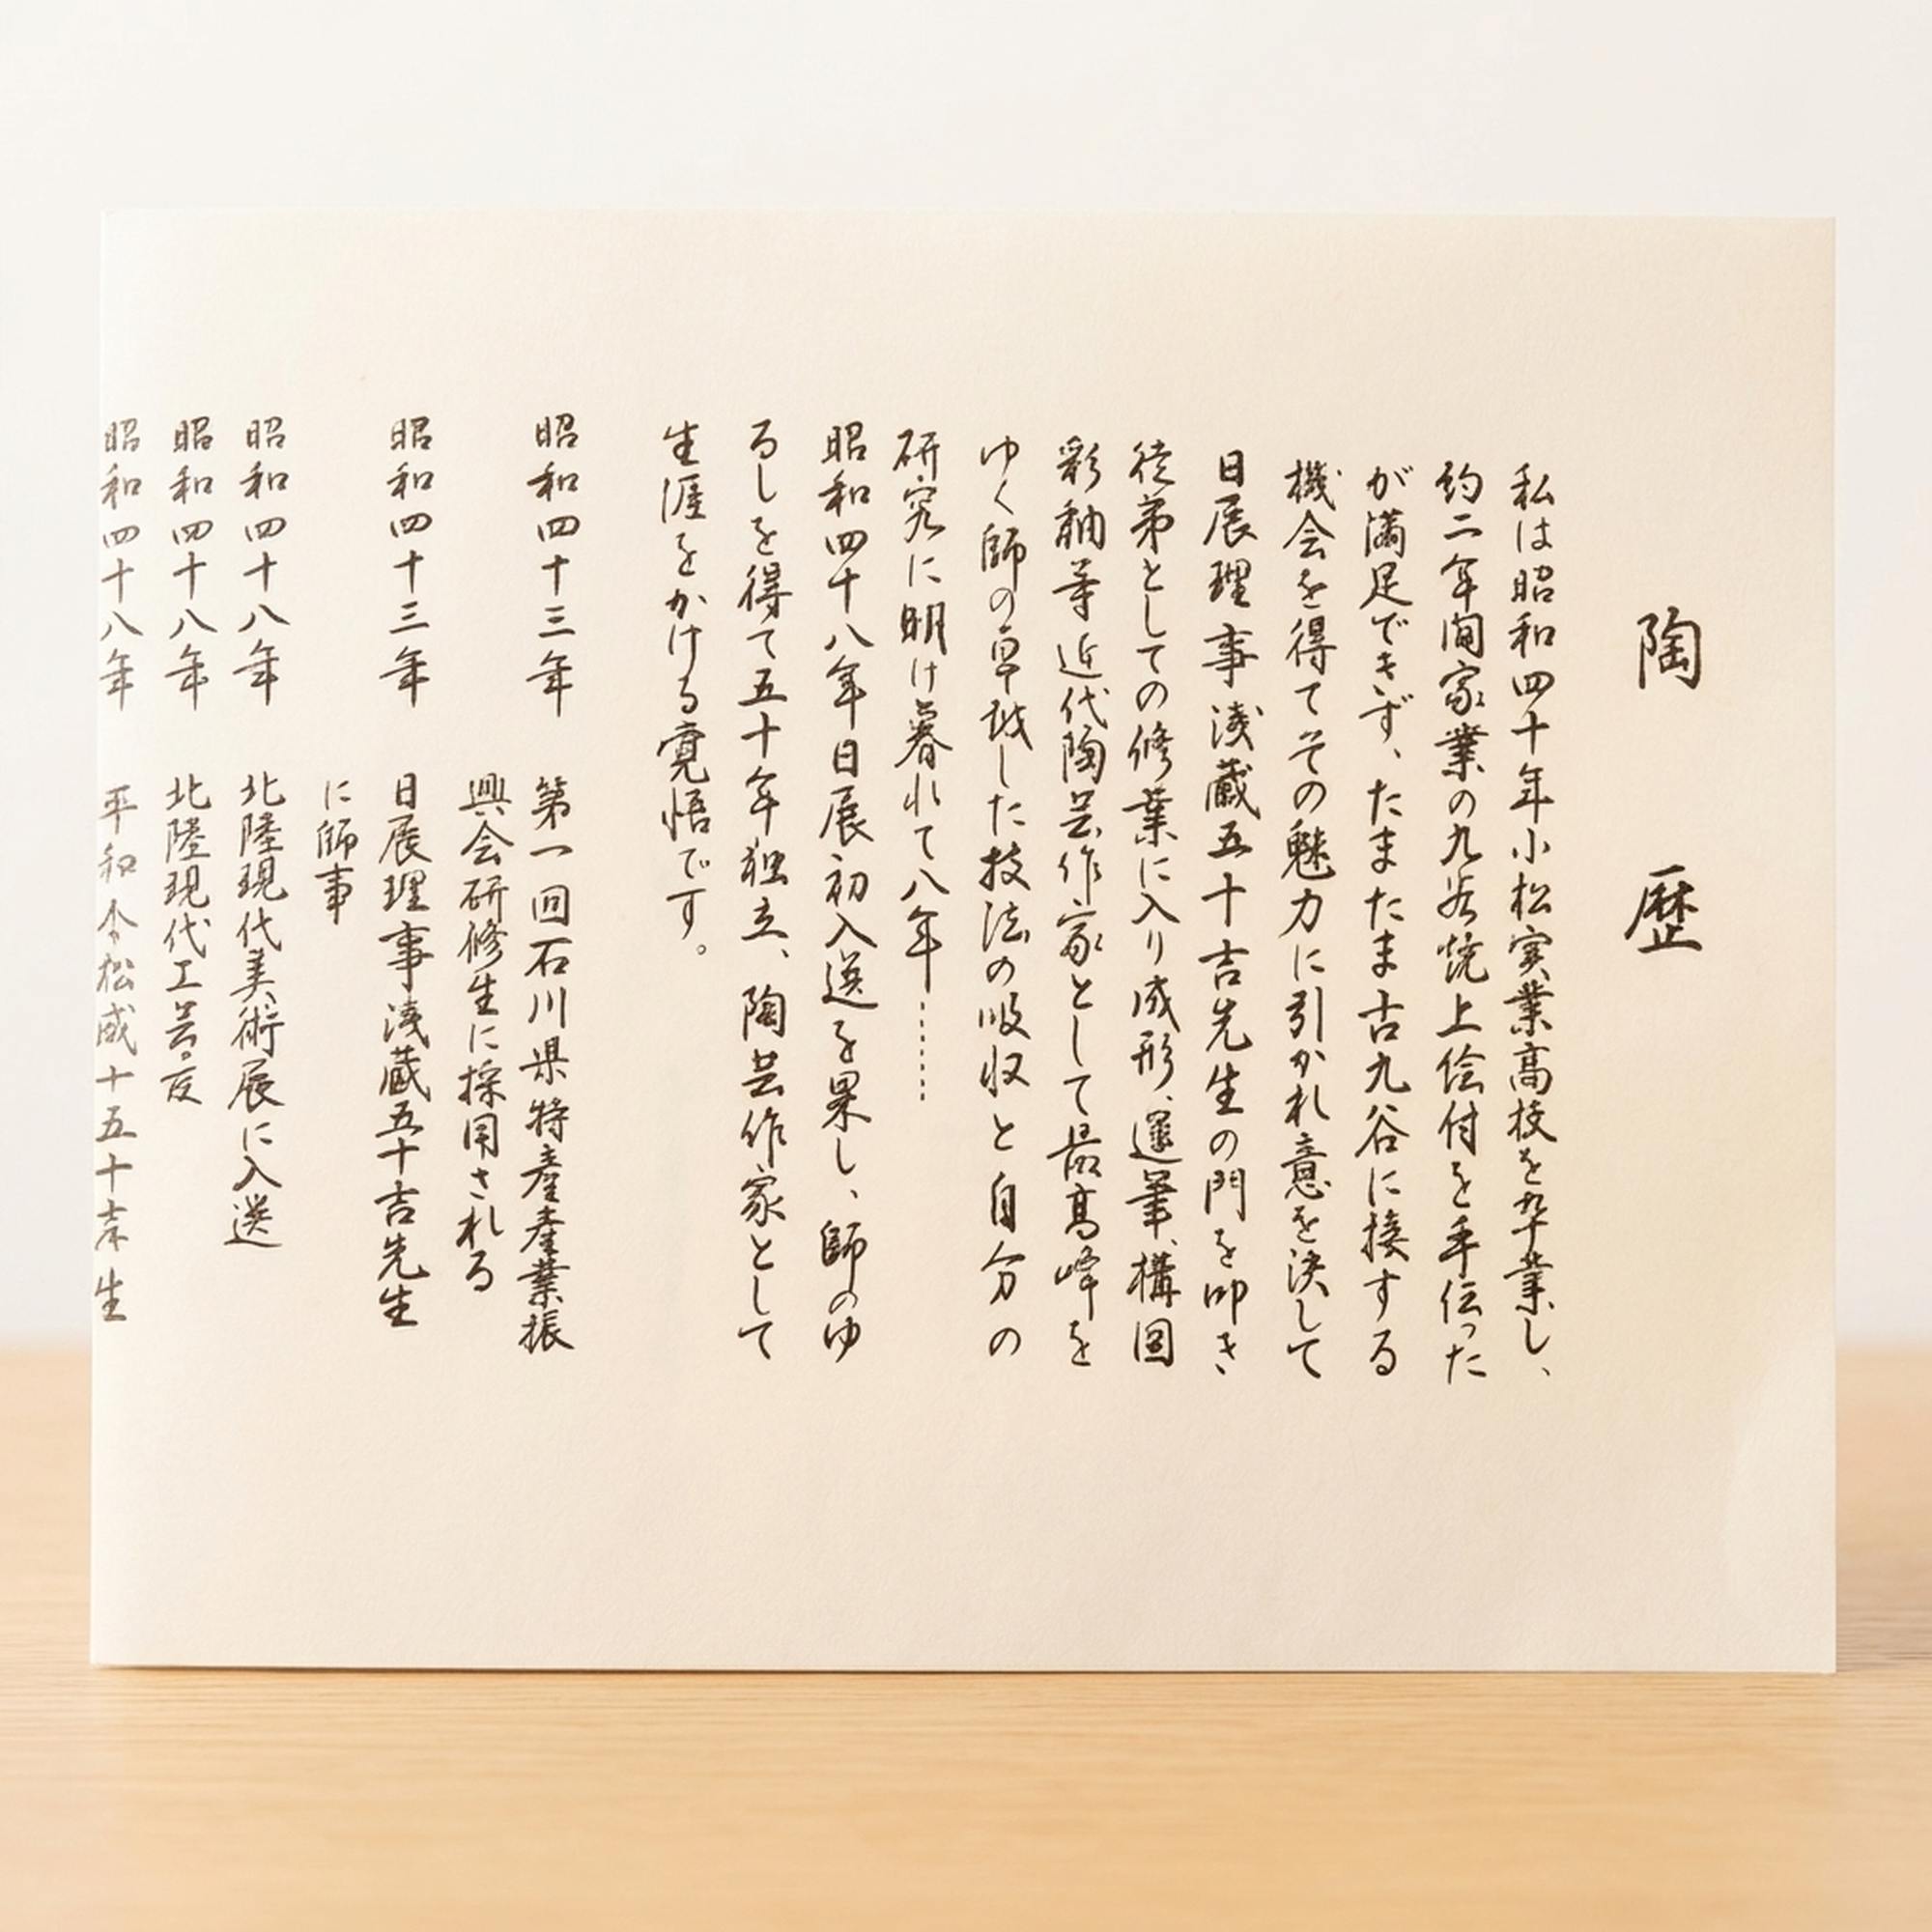 陶歴
私は昭和四十年小松実業高校を卒業し、
約二年間家業の九谷焼上絵付を手伝った
が満足できず、たまたま古九谷に接する
機会を得てその魅力に引かれ意を決して
日展理事浅蔵五十吉先生の門を叩き
徒弟としての修業に入り成形、運筆、構図
彩釉等近代陶芸作家として最高峰を
ゆく師の卓越した技法の吸収と自分の
研究に明け暮れて八年……
昭和四十八年日展初入選を果し、師のゆ
るしを得て五十年独立、陶芸作家として
生涯をかける覚悟です。
昭和四十三年 第一回石川県特産産業振
興会研修生に採用される
昭和四十三年 日展理事浅蔵五十吉先生
に師事
昭和四十八年 北陸現代美術展に入選
昭和四十八年 北陸現代工芸
昭和四十八年